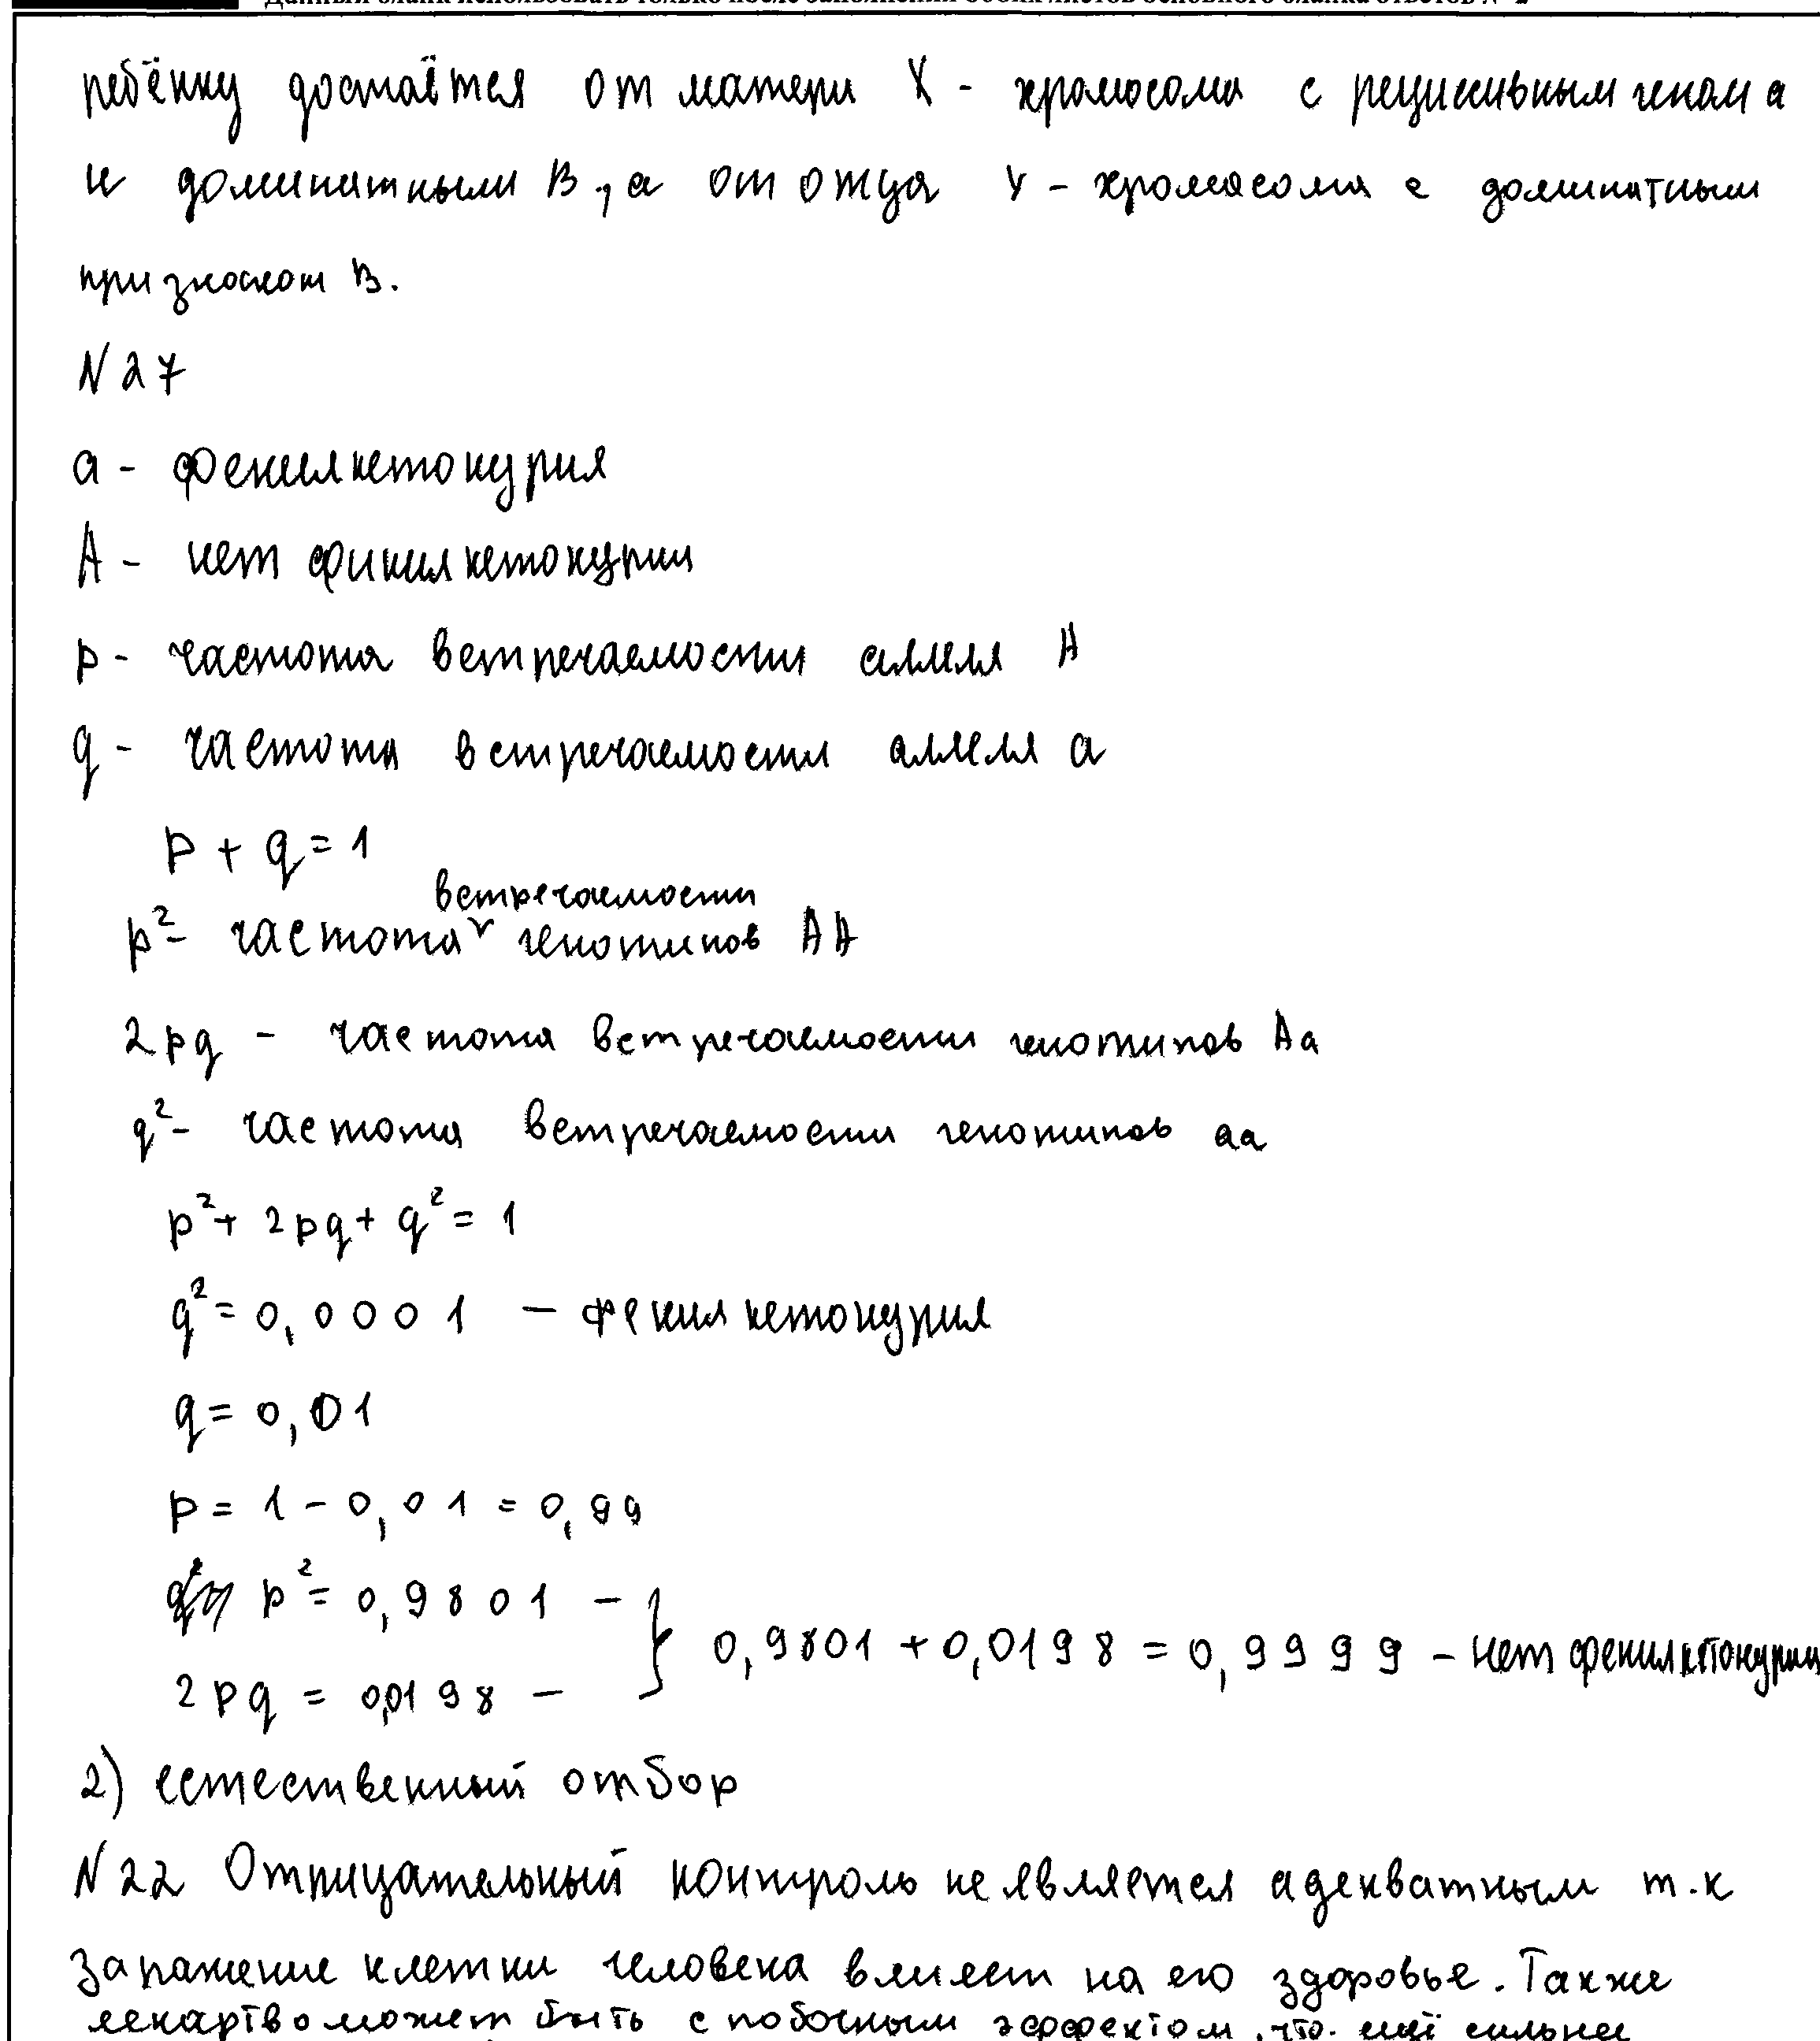 Данный бланк использовать только после заполнения обоих листов основного бланка ответов № 2
ребёнку достаётся от матери X - хромосома с рецессивным геном а
и доминатными B, а от отца Y - хромасома с доминатным
признаком B.
N 27
a - фенилкетонурия
A - нет финилкетонурии
p - частота встречаемости аллеля A
q - частота встречаемости аллеля a
p + q = 1
встречаемости
p² - частота ᵛ генотипов AA
2pq - частота встречаемости генотипов Aa
q² - частота встречаемости генотипов aa
p² + 2pq + q² = 1
q² = 0,0001 - фенилкетонурия
q = 0,01
p = 1 - 0,01 = 0,99
p² = 0,9801 -
} 0,9801 + 0,0198 = 0,9999 - нет фенилкетонурии
2pq = 0,0198 -
2) естественный отбор
N 22 Отрицательный контроль не является адекватным т.к
заражение клетки человека влияет на его здоровье. Также
лекартво может быть с побочным эффектом, что ещё сильнее